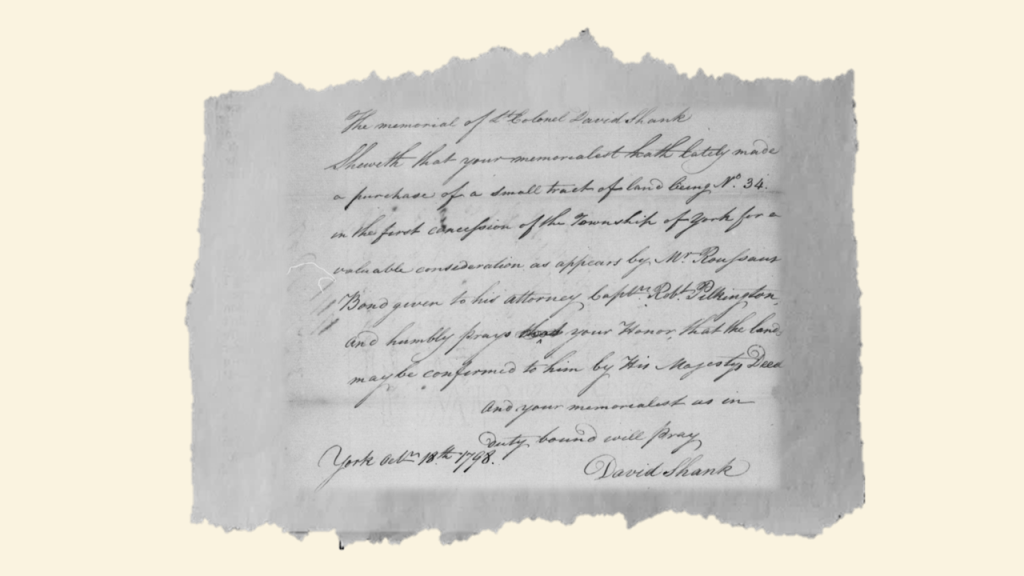 The memorial of Lt Colonel David Shank
Sheweth that your memorialist hath lately made
a purchase of a small tract of land being No. 34.
in the first concession of the Township of York for a
valuable consideration as appears by Mr Roussaus
Bond given to his attorney Captn Robt Pilkington
and humbly prays that your Honor, that the land
may be confirmed to him by His Majestys Deed
And your memorialist as in
duty bound will pray
York Octr 18th 1798.
David Shank